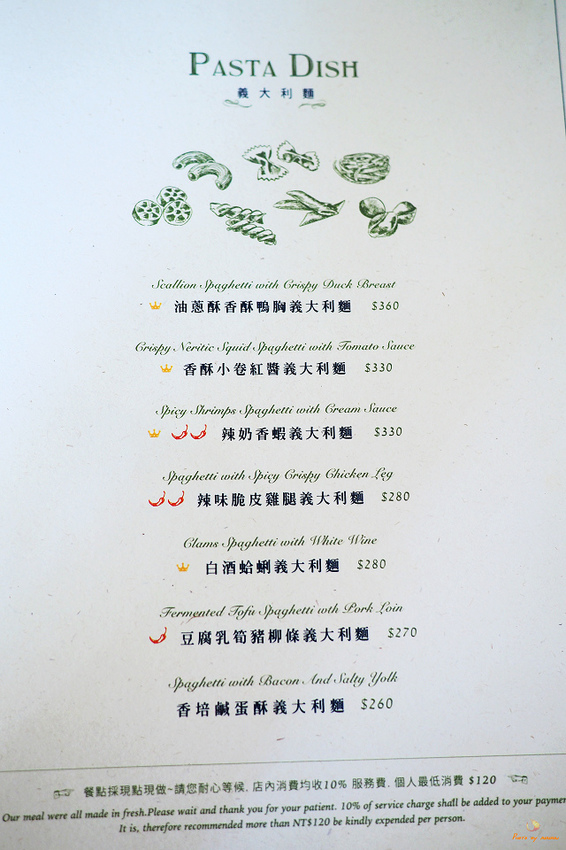 PASTA DISH
義大利麵
Scallion Spaghetti with Crispy Duck Breast
油蔥酥香酥鴨胸義大利麵 $360
Crispy Neritic Squid Spaghetti with Tomato Sauce
香酥小卷紅醬義大利麵 $330
Spicy Shrimps Spaghetti with Cream Sauce
辣奶香蝦義大利麵 $330
Spaghetti with Spicy Crispy Chicken Leg
辣味脆皮雞腿義大利麵 $280
Clams Spaghetti with White Wine
白酒蛤蜊義大利麵 $280
Fermented Tofu Spaghetti wth Pork Loin
豆腐乳筍豬柳條義大利麵 $270
Spaghetti with Bacon And Salty Yolk
香培鹹蛋酥義大利麵 $260
餐點採現點現做~請您耐心等候. 店內消費均收10% 服務費. 個人最低消費 $120
Our meal were all made in fresh.Please wait and thank you for your patient. 10% of service charge shall be added to your paymen
It is, therefore recommended more than NT$120 be kindly expended per person.